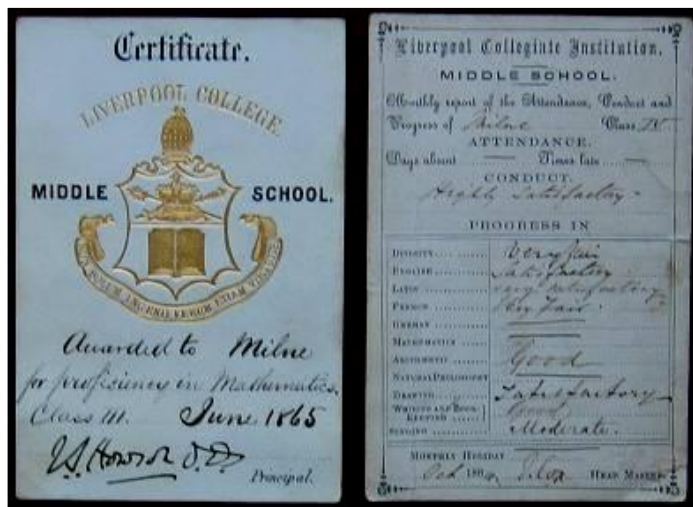 Certificate.
LIVERPOOL COLLEGE
MIDDLE SCHOOL.
NON SOLUM INGENII VERUM ETIAM VIRTUTIS
Awarded to Milne
for proficiency in Mathematics.
Class III. June 1865
Principal.
Liverpool Collegiate Institution.
MIDDLE SCHOOL.
Monthly report of the Attendance, Conduct and
Progress of Milne Class IV
ATTENDANCE.
Days absent — Times late —
CONDUCT.
Highly Satisfactory -
PROGRESS IN
DIVINITY Very fair
ENGLISH Satisfactory
LATIN Very satisfactory
FRENCH Very Fair.
GERMAN
MATHEMATICS
ARITHMETIC Good
NATURAL PHILOSOPHY
DRAWING Satisfactory
WRITING AND BOOK- KEEPING Good
SINGING Moderate.
MONTHLY HOLIDAY
Oct 186 HEAD MASTER